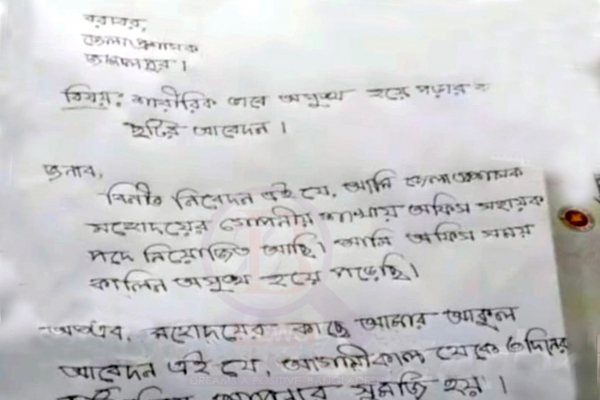 বরাবর,
জেলা প্রশাসক
জামালপুর।
বিষয়: শারীরিক ভাবে অসুস্থ হয়ে পড়ার
ছুটির আবেদন।
জনাব,
বিনীত নিবেদন এই যে, আমি জেলা প্রশাসক
মহোদয়ের গোপনীয় শাখায় অফিস সহায়ক
পদে নিয়োজিত আছি। আমি অফিস সময়
কালিন অসুস্থ হয়ে পড়েছি।
অতএব, মহোদয়ের কাছে আমার আকুল
আবেদন এই যে, আগামীকাল থেকে ৩দিনের
আপনার মর্জি হয়।